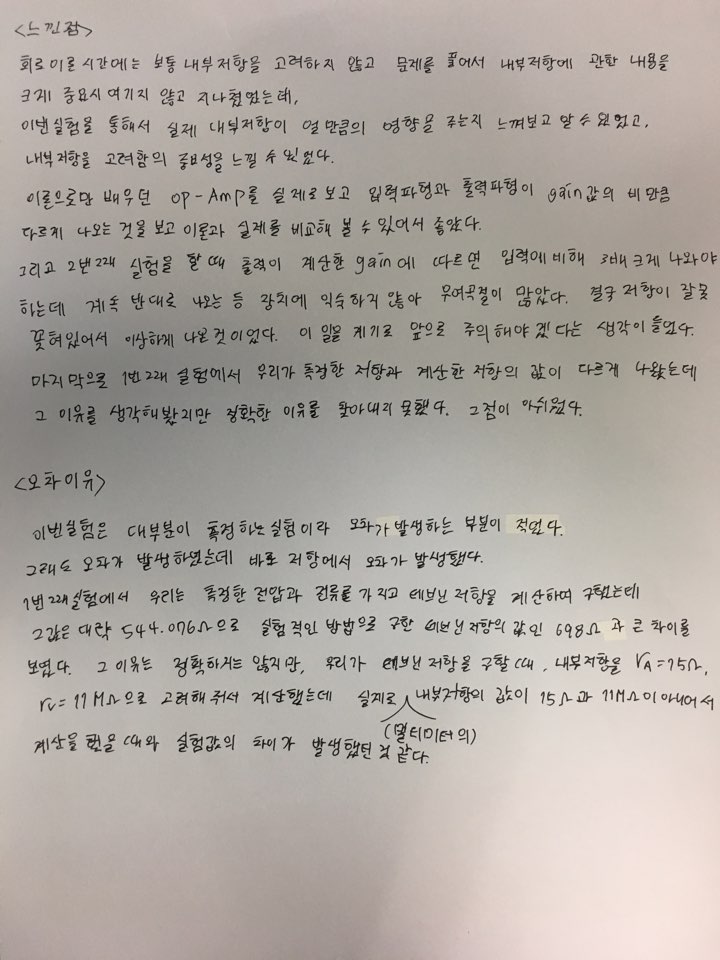 <느낀점>
회로이론 시간에는 보통 내부저항을 고려하지 않고 문제를 풀어서 내부저항에 관한 내용을
크게 중요시 여기지 않고 지나쳤었는데,
이번실험을 통해서 실제 내부저항이 얼만큼의 영향을 주는지 느껴보고 알 수 있었고,
내부저항을 고려함의 중요성을 느낄 수 있었다.
이론으로만 배우던 op-Amp를 실제로 보고 입력파형과 출력파형이 gain값의 비만큼
다르게 나오는 것을 보고 이론과 실제를 비교해 볼 수 있어서 좋았다.
그리고 2번 2째 실험을 할 때 출력이 계산한 gain에 따르면 입력에 비해 3배 크게 나와야
하는데 계속 반대로 나오는 등 장치에 익숙하지 않아 우여곡절이 많았다. 결국 저항이 잘못
꽂혀있어서 이상하게 나온 것이었다. 이 일을 계기로 앞으로 주의해야 겠다는 생각이 들었다.
마지막으로 1번 2째 실험에서 우리가 측정한 저항과 계산한 저항의 값이 다르게 나왔는데
그 이유를 생각해봤지만 정확한 이유를 찾아내지 못했다. 그점이 아쉬웠다.
<오차이유>
이번실험은 대부분이 측정하는실험이라 오차가 발생하는 부분이 적었다.
그래도 오차가 발생하였는데 바로 저항에서 오차가 발생했다.
1번 2째실험에서 우리는 측정한 전압과 전류를 가지고 테브닌 저항을 계산하여 구했는데
그값은 대략 544.076Ω으로 실험적인 방법으로 구한 테브닌저항의 값인 698Ω과 큰 차이를
보였다. 그 이유는 정확하지는 않지만, 우리가 테브닌 저항을 구할 때, 내부저항을 rA=15Ω,
rv=11MΩ으로 고려해 줘서 계산했는데 실제로 (멀티미터의) 내부저항의 값이 15Ω과 11MΩ이 아니어서
계산을 했을 때와 실험값의 차이가 발생했던 것 같다.